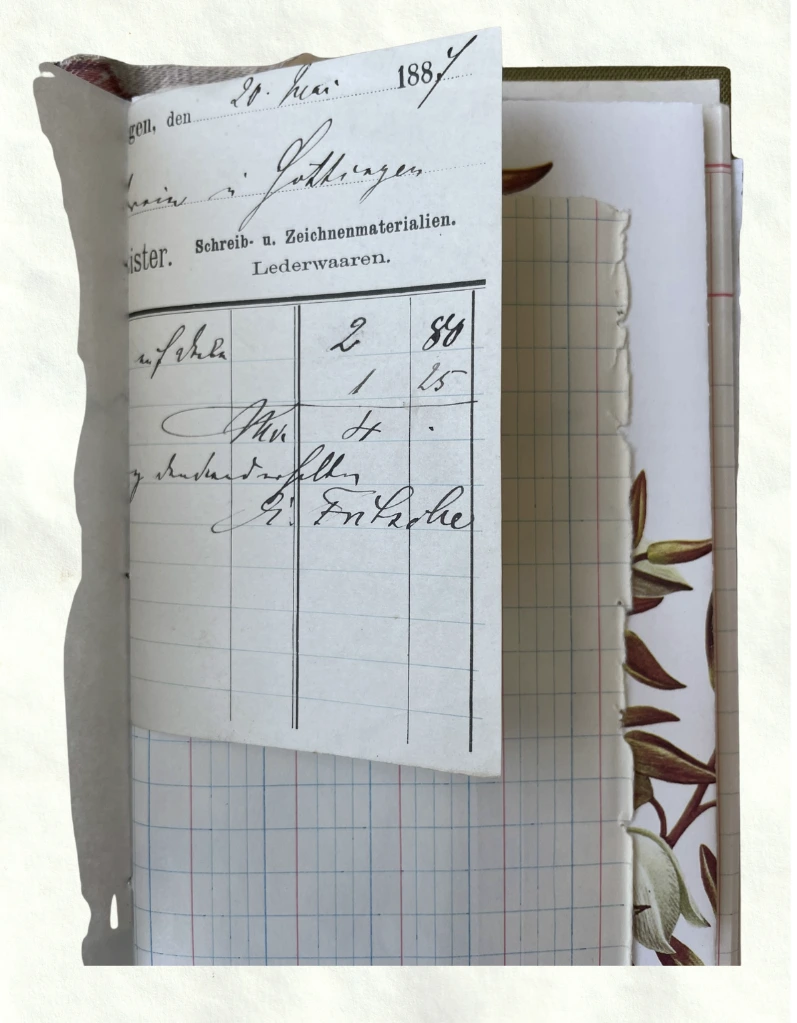 gen, den 20. Mai 1887
rein i Göttingen
ister. Schreib- u. Zeichnenmaterialien.
Lederwaaren.
auf 2 80
1 25
Mk. 4 .
erhalten
Fritsche